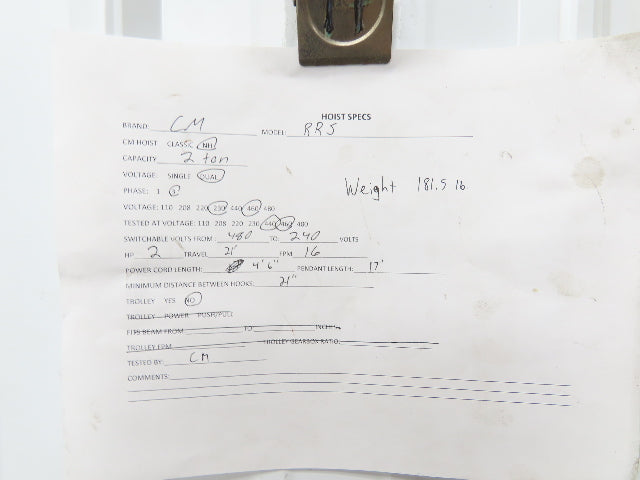 HOIST SPECS
BRAND: CM MODEL: RRS
CM HOIST CLASSIC NH
CAPACITY 2 ton
VOLTAGE: SINGLE DUAL
Weight 181.5 lb
PHASE: 1 3
VOLTAGE: 110 208 220 230 440 460 480
TESTED AT VOLTAGE: 110 208 220 230 440 460 480
SWITCHABLE VOLTS FROM: 480 TO: 240 VOLTS
HP 2 TRAVEL 21' FPM 16
POWER CORD LENGTH: 4' 6" PENDANT LENGTH: 17'
MINIMUM DISTANCE BETWEEN HOOKS: 21"
TROLLEY YES NO
TROLLEY POWER PUSH/PULL
FITS BEAM FROM TO INCH
TROLLEY FPM TROLLEY GEARBOX RATIO:
TESTED BY: CM
COMMENTS: